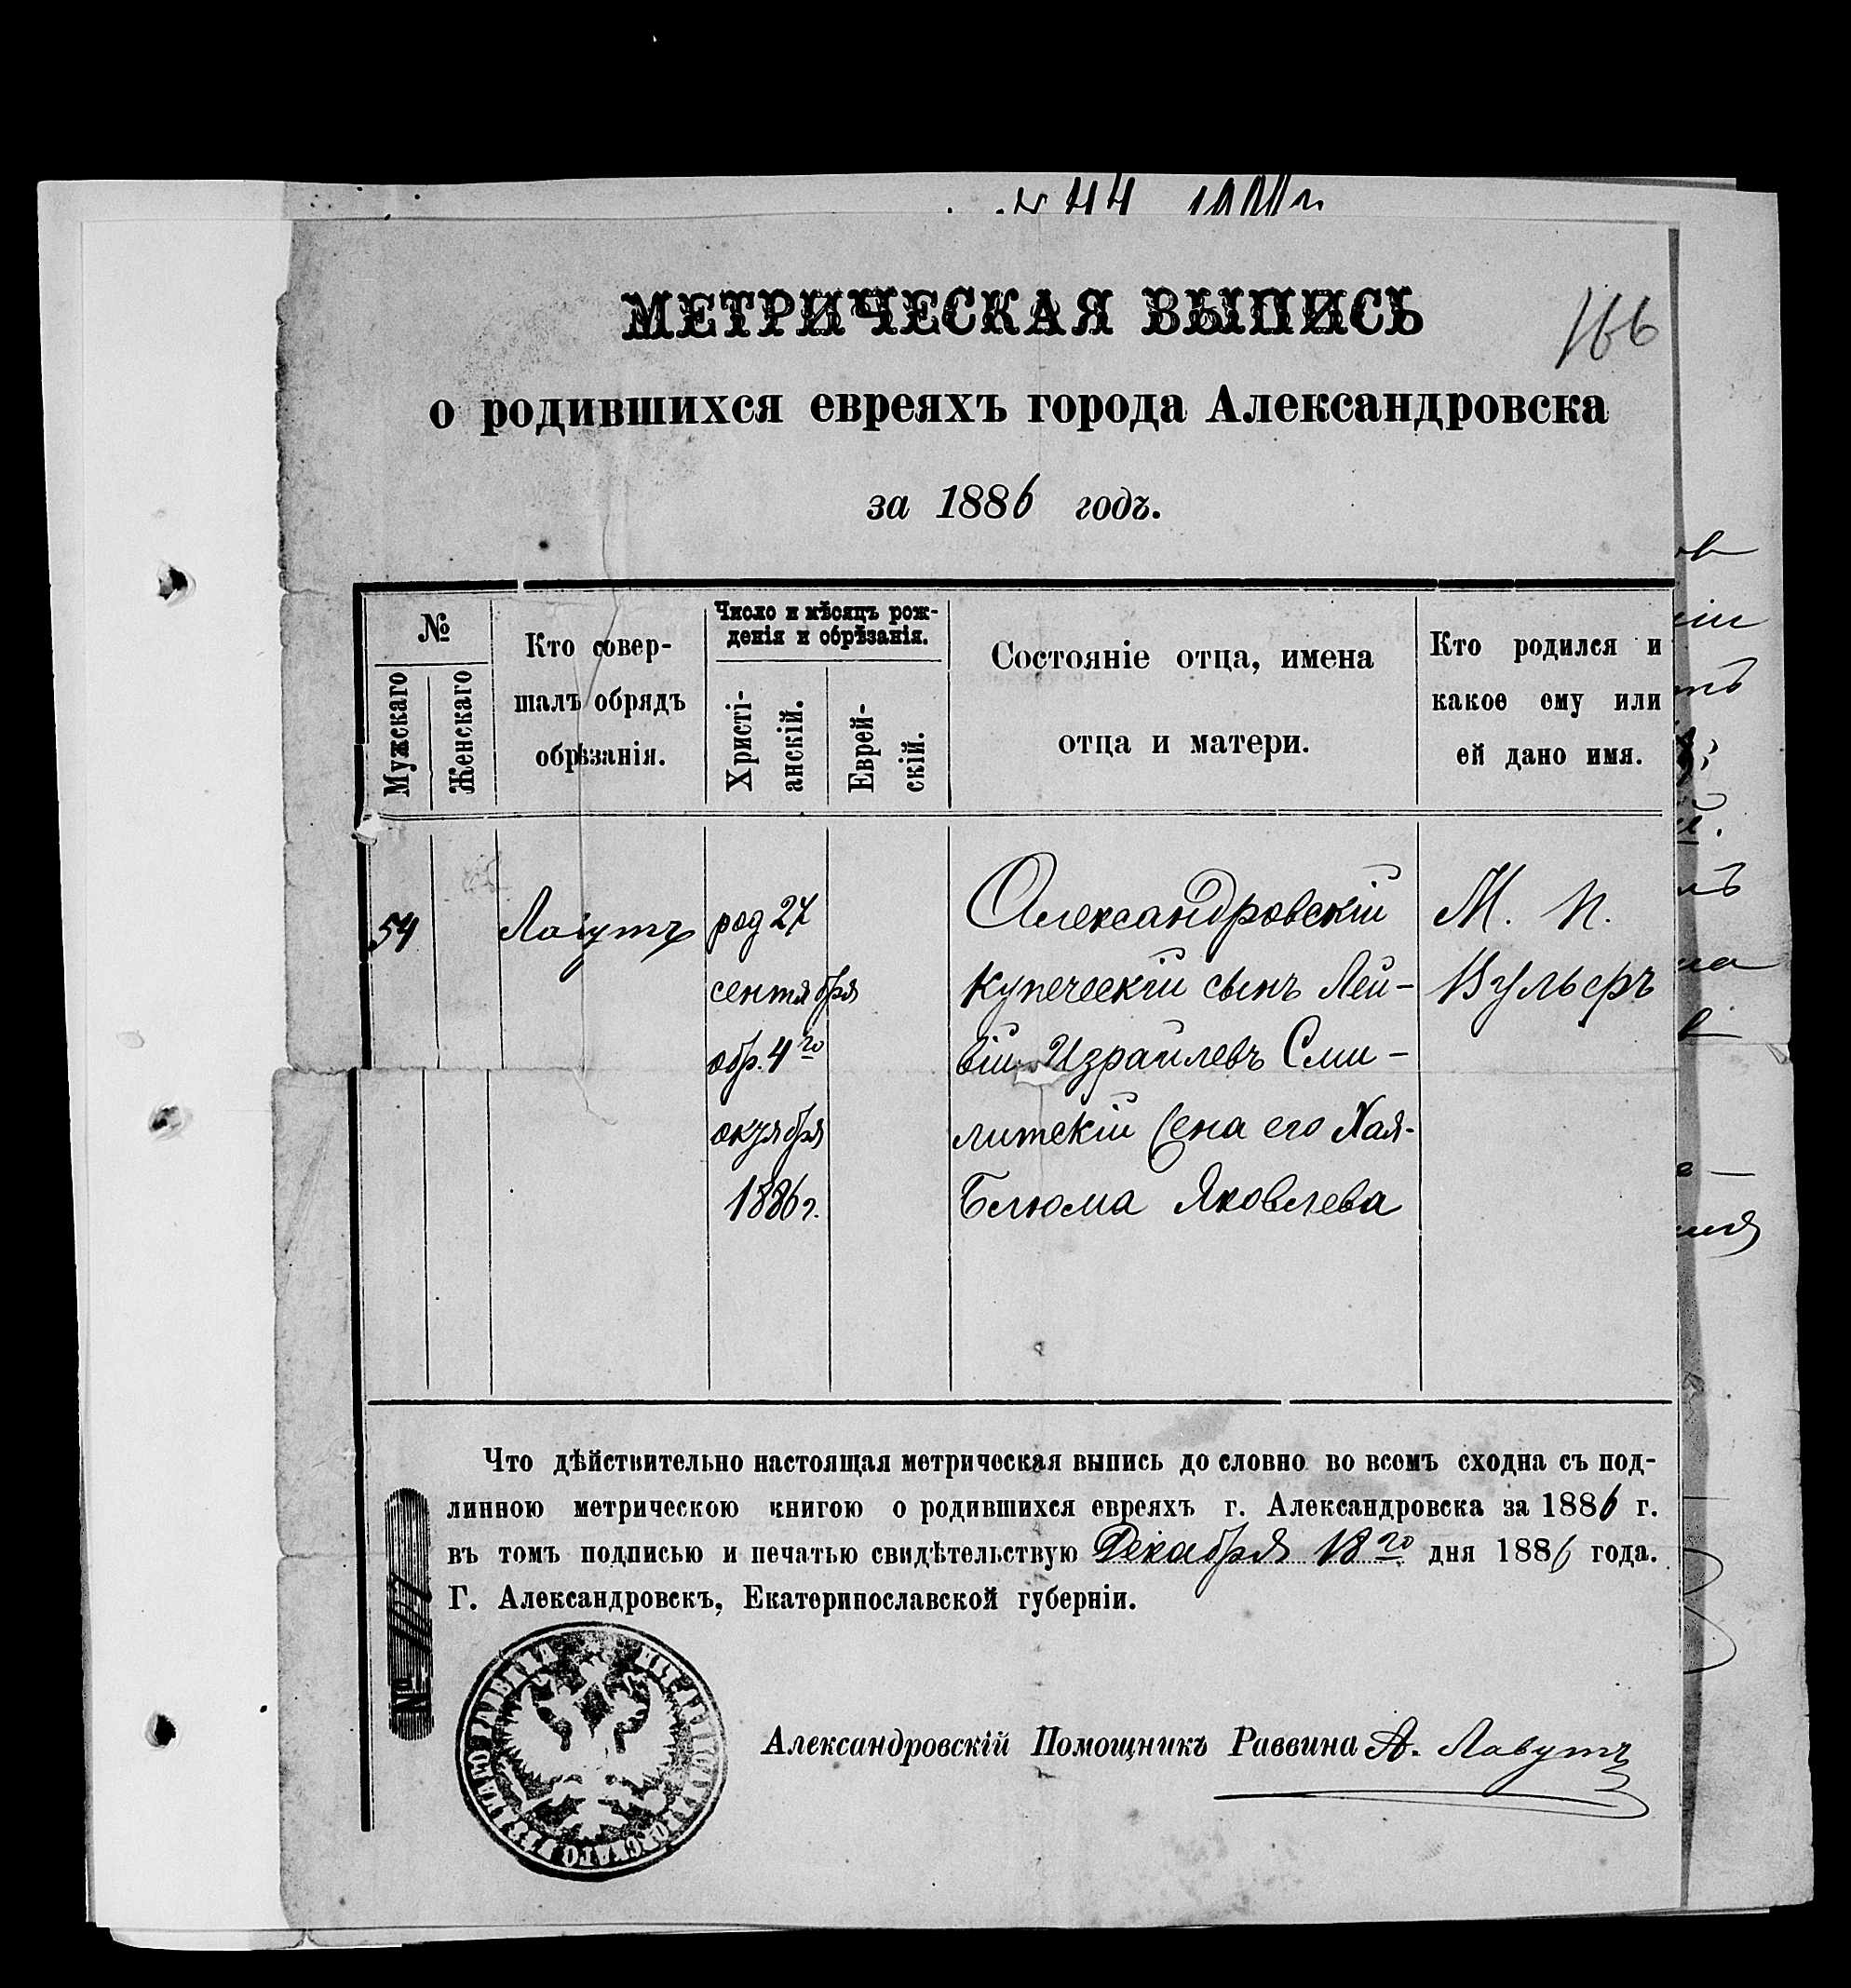 166
МЕТРИЧЕСКАЯ ВЫПИСЬ
о родившихся евреяхъ города Александровска
за 1886 годъ.
№
Мужскаго
Женскаго
Кто совер-
шалъ обрядъ
обрѣзанія.
Число и мѣсяцъ рож-
денія и обрѣзанія.
Христі-
анскій.
Еврей-
скій.
Состояніе отца, имена
отца и матери.
Кто родился и
какое ему или
ей дано имя.
54
Лавутъ
род 27
сентября
обр. 4го
октября
1886 г.
Александровскій
купеческій сынъ Лей-
вій Израилевъ Сми-
литскій жена его Хая-
Блюма Яковлева
М. п.
Вульфъ
Что дѣйствительно настоящая метрическая выпись до словно во всемъ сходна съ под-
линною метрическою книгою о родившихся евреяхъ г. Александровска за 1886 г.
въ томъ подписью и печатью свидѣтельствую Декабря 18го дня 1886 года.
Г. Александровскъ, Екатеринославской губерніи.
№
Александровскій Помощникъ Раввина А. Лавутъ